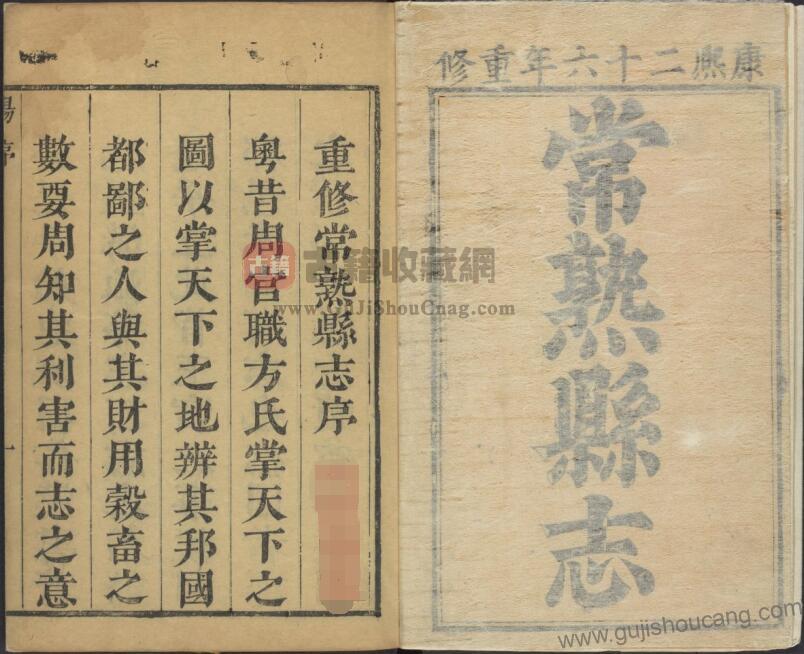 康熙二十六年重修
常熟縣志
重修常熟縣志序
粵昔周官職方氏掌天下之
圖以掌天下之地辨其邦國
都鄙之人與其財用穀畜之
數要周知其利害而志之意
楊序
一
古籍
古籍收藏網
www.GuJiShouCnag.com
www.gujishoucang.com